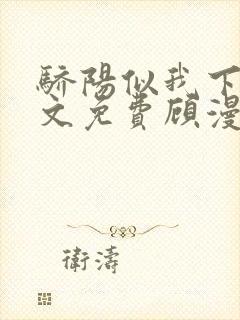 驕陽似我下
文免費顧漫
衛濤